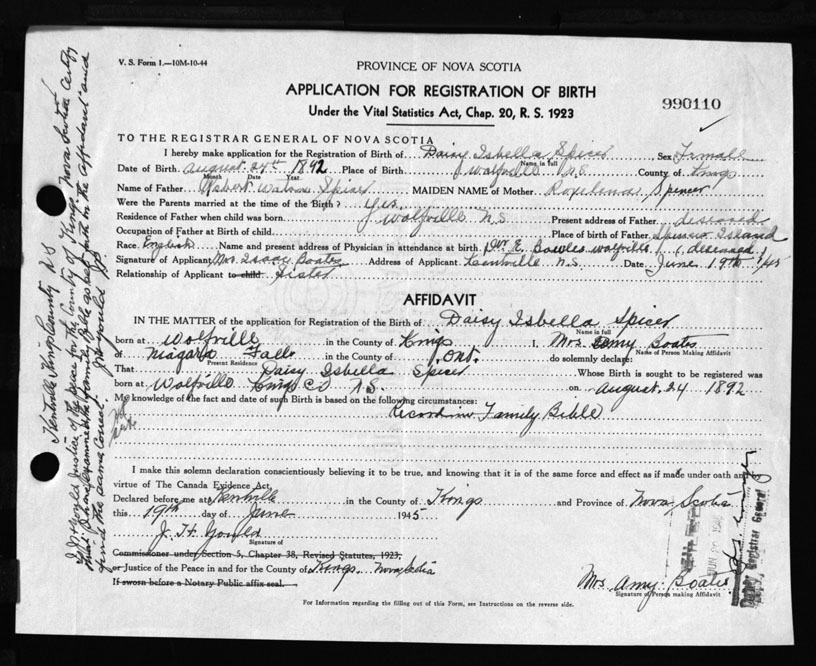 V. S. Form 1.—10M-10-44
PROVINCE OF NOVA SCOTIA
APPLICATION FOR REGISTRATION OF BIRTH
Under the Vital Statistics Act, Chap. 20, R. S. 1923
990110
TO THE REGISTRAR GENERAL OF NOVA SCOTIA
I hereby make application for the Registration of Birth of Daisy Isbella Spicer Sex Female
Name in full
Date of Birth August 24th 1892 Place of Birth Wolfville N.S. County of Kings
Month Date Year
Name of Father Spicer MAIDEN NAME of Mother Spencer
Were the Parents married at the time of the Birth? yes
Residence of Father when child was born Wolfville N.S Present address of Father deseased
Occupation of Father at Birth of child Place of birth of Father Spencer Island
Race English Name and present address of Physician in attendance at birth Dr. E. Bowles Wolfville (deseased)
Signature of Applicant Mrs Isaac Boates Address of Applicant Kentville N.S. Date June 19th 1945
Relationship of Applicant to child Sister
AFFIDAVIT
IN THE MATTER of the application for Registration of the Birth of Daisy Isbella Spicer
Name in full
born at Wolfville in the County of Kings I, Mrs Amy Boates
Name of Person Making Affidavit
of Niagara Falls in the County of Ont. do solemnly declare:
Present Residence
That Daisy Isbella Spicer Whose Birth is sought to be registered was
born at Wolfville Kings Co N.S. on August 24 1892
My knowledge of the fact and date of such Birth is based on the following circumstances:
Family Bible
I make this solemn declaration conscientiously believing it to be true, and knowing that it is of the same force and effect as if made under oath and
virtue of The Canada Evidence Act,
Declared before me at Kentville in the County of Kings and Province of Nova Scotia
this 19th day of June 1945
J. H. Gould
Signature of
Commissioner under Section 5, Chapter 38, Revised Statutes, 1923,
or Justice of the Peace in and for the County of Kings Nova Scotia
If sworn before a Notary Public affix seal.
Mrs Amy Boates
Signature of Person making Affidavit
For Information regarding the filling out of this Form, see Instructions on the reverse side.
Kentville Kings County N S
Justice of the peace for the County of Kings Nova Scotia Certify
that I have examined the Family Bible as set forth in the affidavit and
find the same Correct. J H Gould J P
Deputy Registrar General